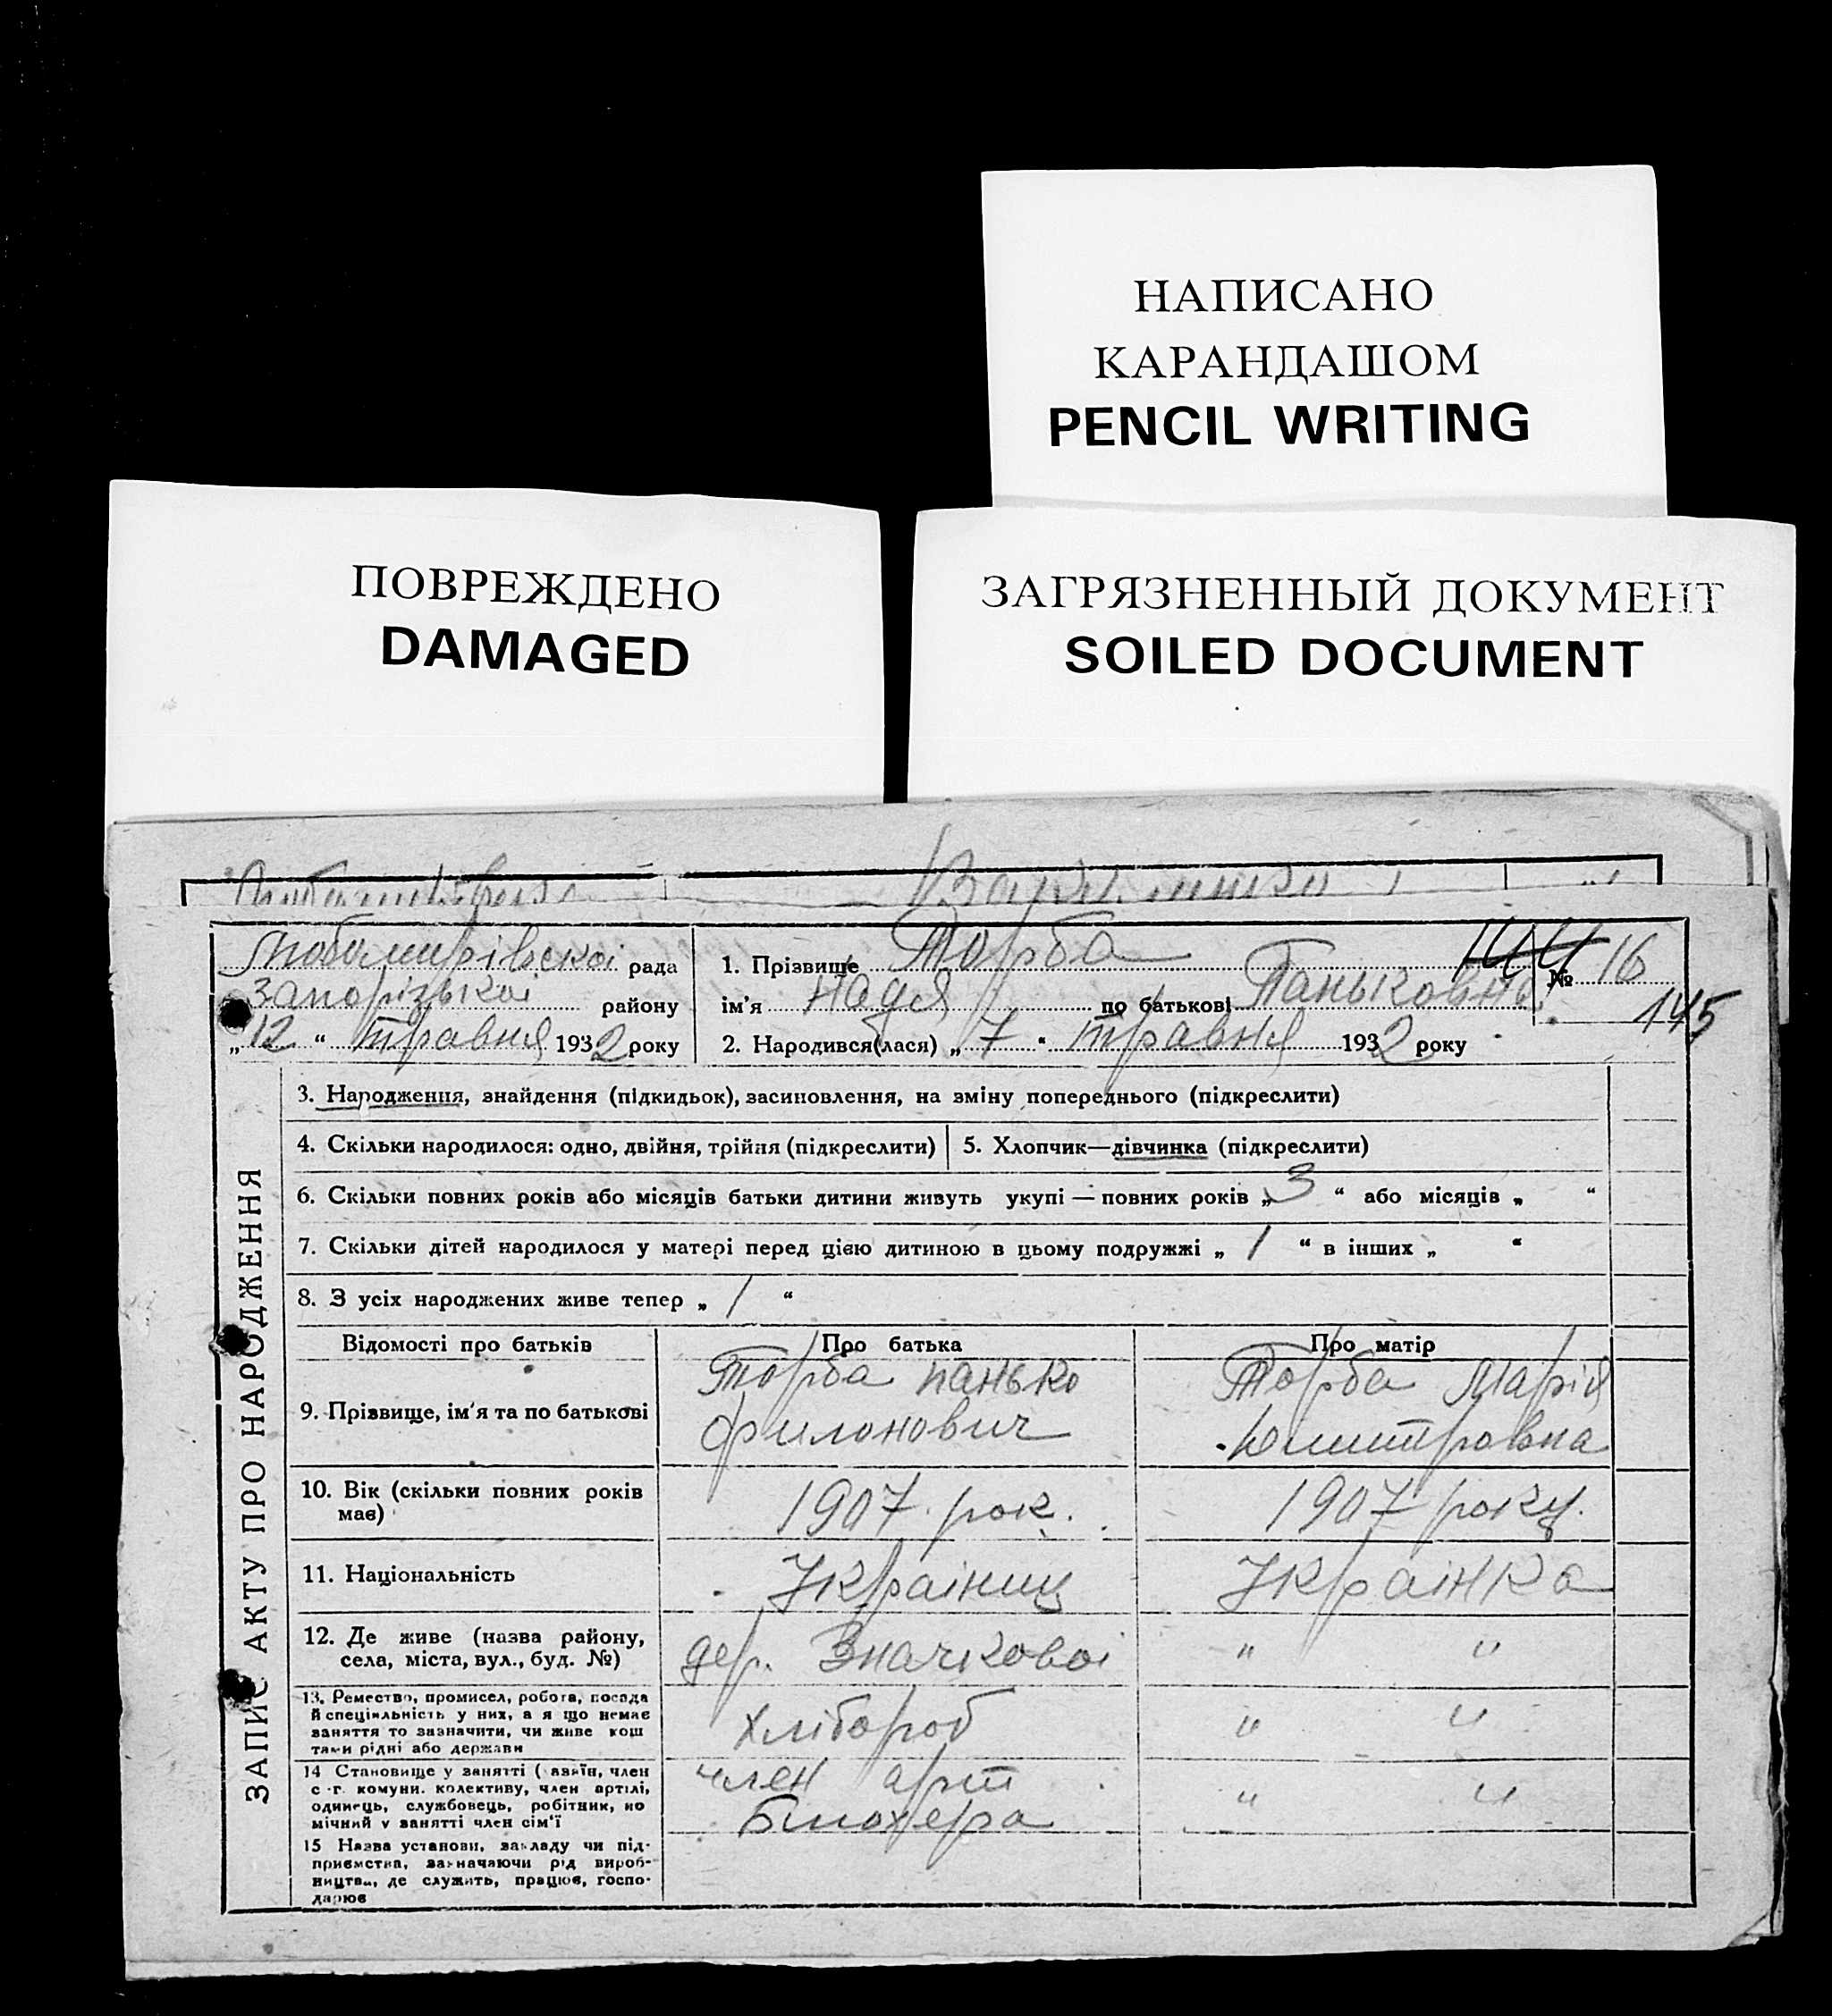 НАПИСАНО
КАРАНДАШОМ
PENCIL WRITING
ПОВРЕЖДЕНО
DAMAGED
ЗАГРЯЗНЕННЫЙ ДОКУМЕНТ
SOILED DOCUMENT
Любомирівскоі рада
Запорізькоі району
„12“ травня 1932 року
1. Прізвище Торба
144 № 16
ім'я Надя по батькові Паньковна
145
2. Народився(лася) „7“ травня 1932 року
ЗАПИС АКТУ ПРО НАРОДЖЕННЯ
3. Народження, знайдення (підкидьок), засиновлення, на зміну попереднього (підкреслити)
4. Скільки народилося: одно, двійня, трійня (підкреслити) 5. Хлопчик—дівчинка (підкреслити)
6. Скільки повних років або місяців батьки дитини живуть укупі — повних років „3“ або місяців „ “
7. Скільки дітей народилося у матері перед цією дитиною в цьому подружжі „1“ в інших „ “
8. З усіх народжених живе тепер „1“
Відомості про батьків Про батька Про матір
9. Прізвище, ім'я та по батькові
Торба панько
Филонович
Торба Марія
Дмитровна
10. Вік (скільки повних років
має)
1907 рок.
1907 року.
11. Національність
Украіниц
Украінка
12. Де живе (назва району,
села, міста, вул., буд. №)
дер. Значковоі
" "
13. Ремество, промисел, робота, посада
й спеціяльність у них, а я що немає
заняття то зазначити, чи живе кош
тами рідні або держави
Хлібороб
" "
14 Становище у занятті (хазяїн, член
с-г. комуни. колективу, член артілі,
одинець, службовець, робітник, по
мічний у занятті член сім'ї
член арт
" "
15 Назва установи, закладу чи під-
приємства, зазначаючи рід вироб-
ництва, де служить, працює, госпо-
дарює